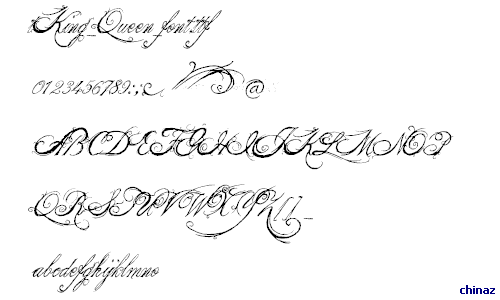 tKing_Queen font.ttf
0123456789:;< @
ABCDEFGHIJKLMNOP
QRSTUVWXYZ[]_
abcdefghijklmno
chinaz